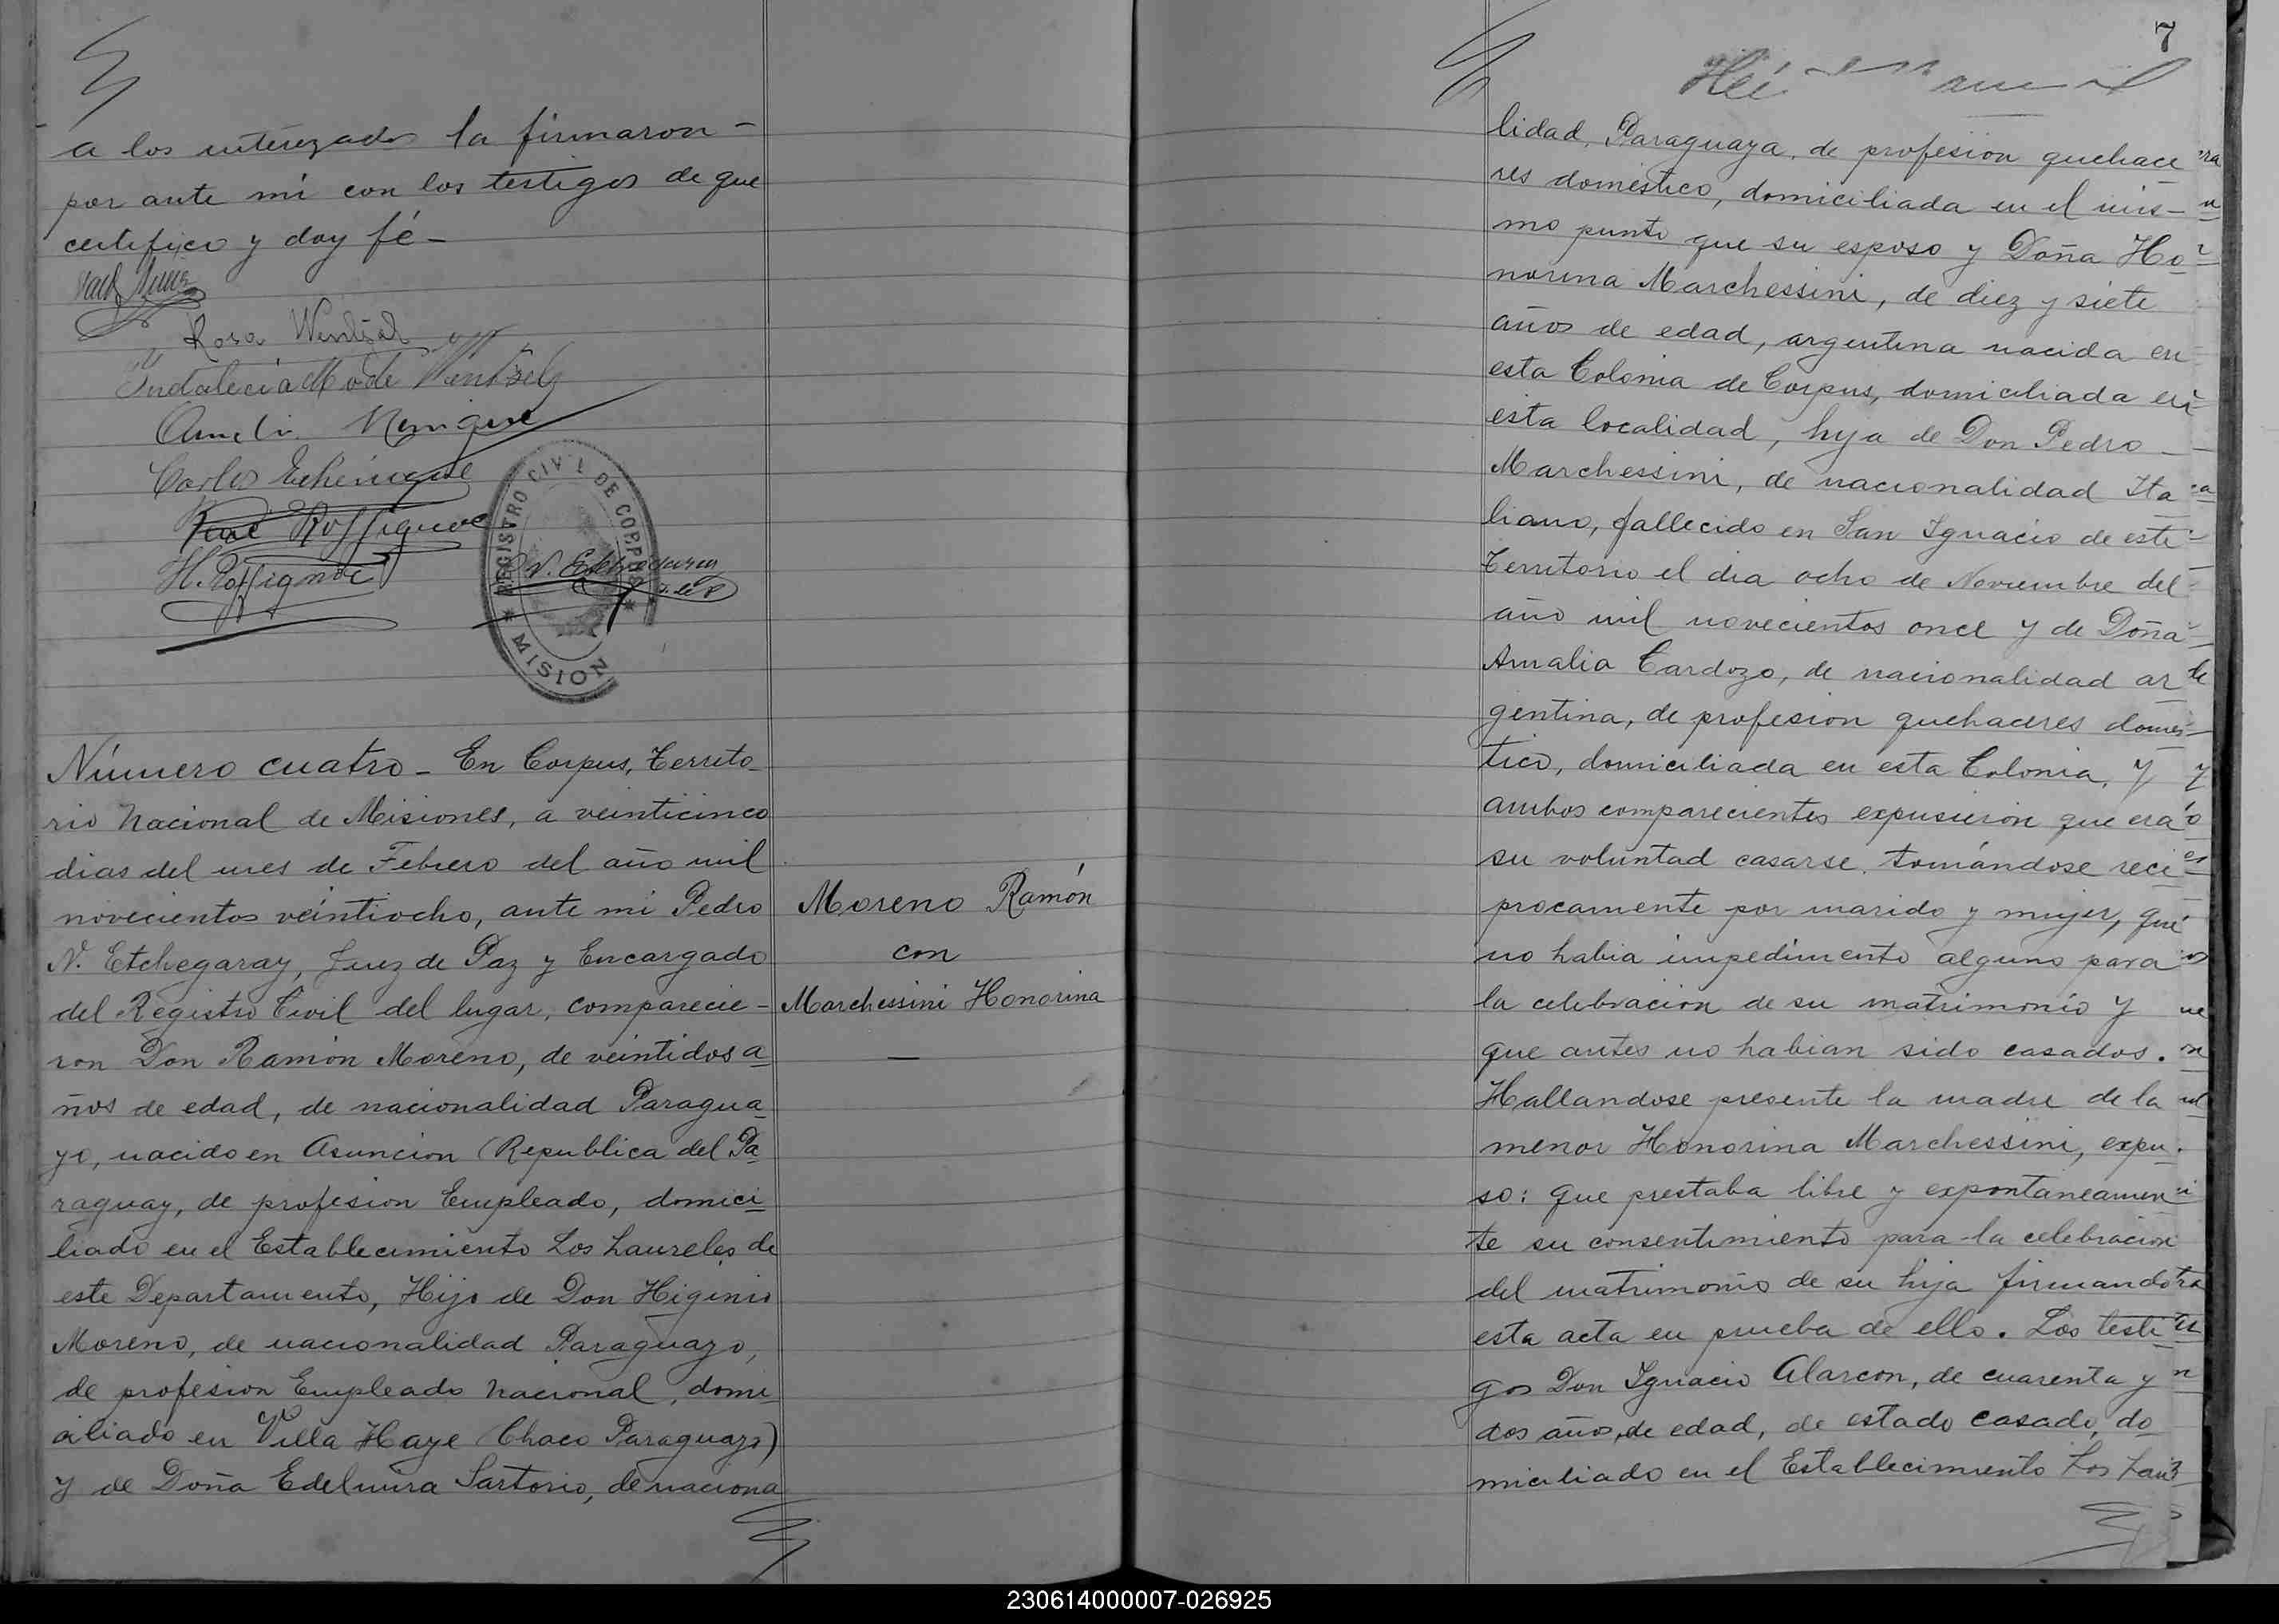 a los interezados la firmaron -
por ante mi con los testigos de que
certifico y doy fé -
Rosa Wentzel
Indalecia M de Wentzel
Carlos Echenique
René Roffignac
H. Roffignac
REGISTRO CIVIL DE CORPUS
* MISION *
Número cuatro - En Corpus, Territo-
rio Nacional de Misiones, a veinticinco
dias del mes de Febrero del año mil
novecientos veintiocho, ante mi Pedro
N. Etchegaray, Juez de Paz y Encargado
del Registro Civil del lugar, comparecie-
ron Don Ramón Moreno, de veintidos a
ños de edad, de nacionalidad Paragua
yo, nacido en Asuncion (Republica del Pa
raguay, de profesion Empleado, domici
liado en el Establecimiento Los Laureles de
este Departamento, Hijo de Don Higinio
Moreno, de nacionalidad Paraguayo,
de profesion Empleado Nacional, domi
ciliado en Villa Haye (Chaco Paraguayo)
y de Doña Edelmira Sartorio, de naciona
Moreno Ramón
con
Marchessini Honorina
7
lidad, Paraguaya, de profesion quehace
res doméstico, domiciliada en el mis-
mo punto que su esposo y Doña Ho
norina Marchessini, de diez y siete
años de edad, argentina nacida en
esta Colonia de Corpus, domiciliada en
esta localidad, hija de Don Pedro
Marchessini, de nacionalidad Ita
liano, fallecido en San Ignacio de este
Territorio el dia ocho de Noviembre del
año mil novecientos once y de Doña
Amalia Cardozo, de nacionalidad ar
gentina, de profesion quehaceres domés-
tico, domiciliada en esta Colonia, y
ambos comparecientes expusieron que era
su voluntad casarse tomándose reci
procamente por marido y mujer, que
no habia impedimento alguno para
la celebracion de su matrimonio y
que antes no habian sido casados.
Hallandose presente la madre de la
menor Honorina Marchessini, expu.
so: que prestaba libre y expontaneamen
te su consentimiento para la celebracion
del matrimonio de su hija firmando
esta acta en prueba de ello. Los testi
gos Don Ignacio Alarcon, de cuarenta y
dos años de edad, de estado casado, do
miciliado en el Establecimiento Los Lau
230614000007-026925